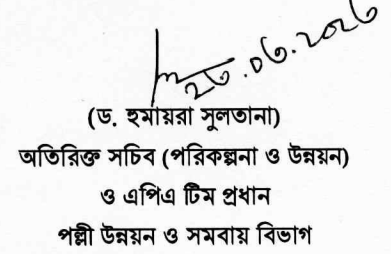 ২৫.০৬.২০২৫
(ড. হুমায়রা সুলতানা)
অতিরিক্ত সচিব (পরিকল্পনা ও উন্নয়ন)
ও এপিএ টিম প্রধান
পল্লী উন্নয়ন ও সমবায় বিভাগ